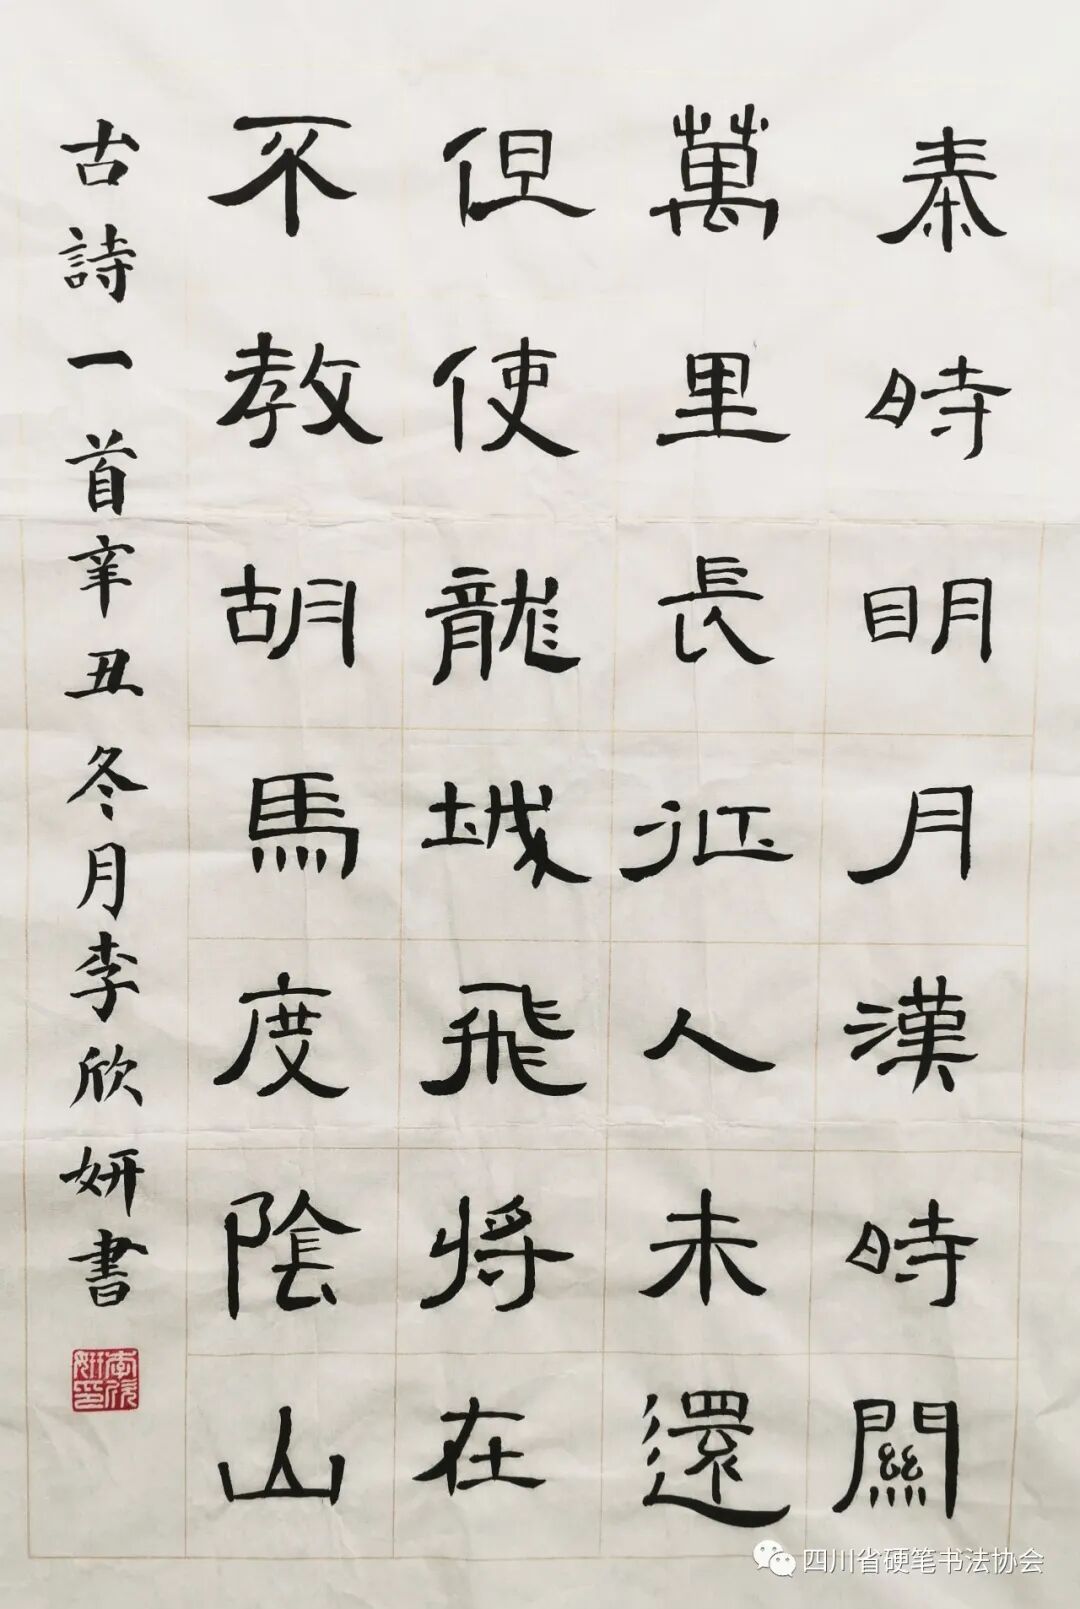 秦時明月漢時關
萬里長征人未還
但使龍城飛將在
不教胡馬度陰山
古詩一首辛丑冬月李欣妍書
李欣妍印
四川省硬笔书法协会